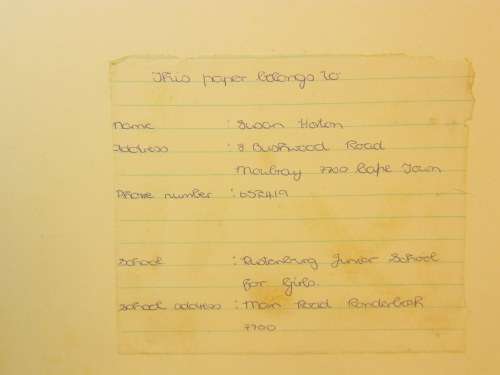 This paper belongs to
Name : Susan Horton
Address : 8 Bushwood Road
Mowbray 7700 Cape Town
Phone number : 652419
School : Rustenburg Junior School
for Girls.
School address : Main Road Rondebosh
7700